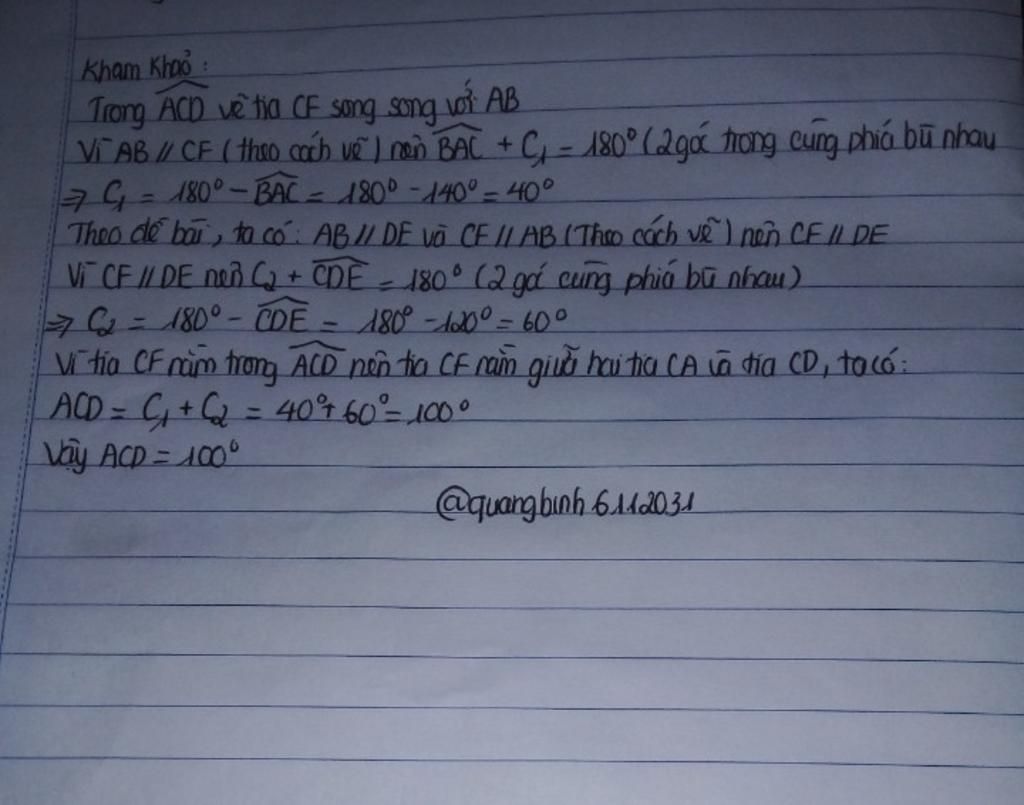 Kham Khảo :
Trong ACD vẽ tia CF song song với AB
Vì AB // CF ( theo cách vẽ ) nên BAC + C₁ = 180° ( 2 góc trong cùng phía bù nhau
⇒ C₁ = 180° - BAC = 180° - 140° = 40°
Theo đề bài , ta có : AB // DE và CF // AB ( Theo cách vẽ ) nên CF // DE
Vì CF // DE nên C₂ + CDE = 180° ( 2 góc cùng phía bù nhau )
⇒ C₂ = 180° - CDE = 180° - 120° = 60°
Vì tia CF nằm trong ACD nên tia CF nằm giữa hai tia CA và tia CD , ta có :
ACD = C₁ + C₂ = 40° + 60° = 100°
Vậy ACD = 100°
@quangbinh6112031